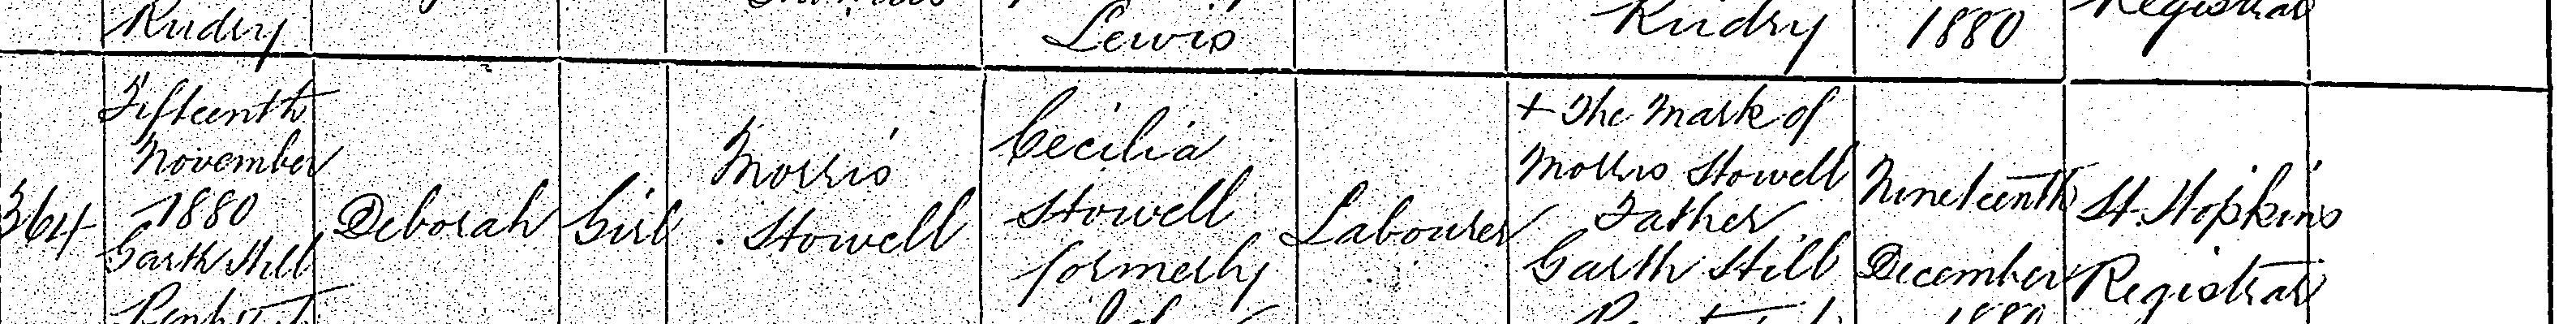 Rudry
Lewis
Rudry
1880
Registrar
364
Fifteenth
November
1880
Garth Hill
Deborah
Girl
Morris
Howell
Cecilia
Howell
formerly
Labourer
+ The Mark of
Morris Howell
Father
Garth Hill
Nineteenth
December
1880
H. Hopkins
Registrar